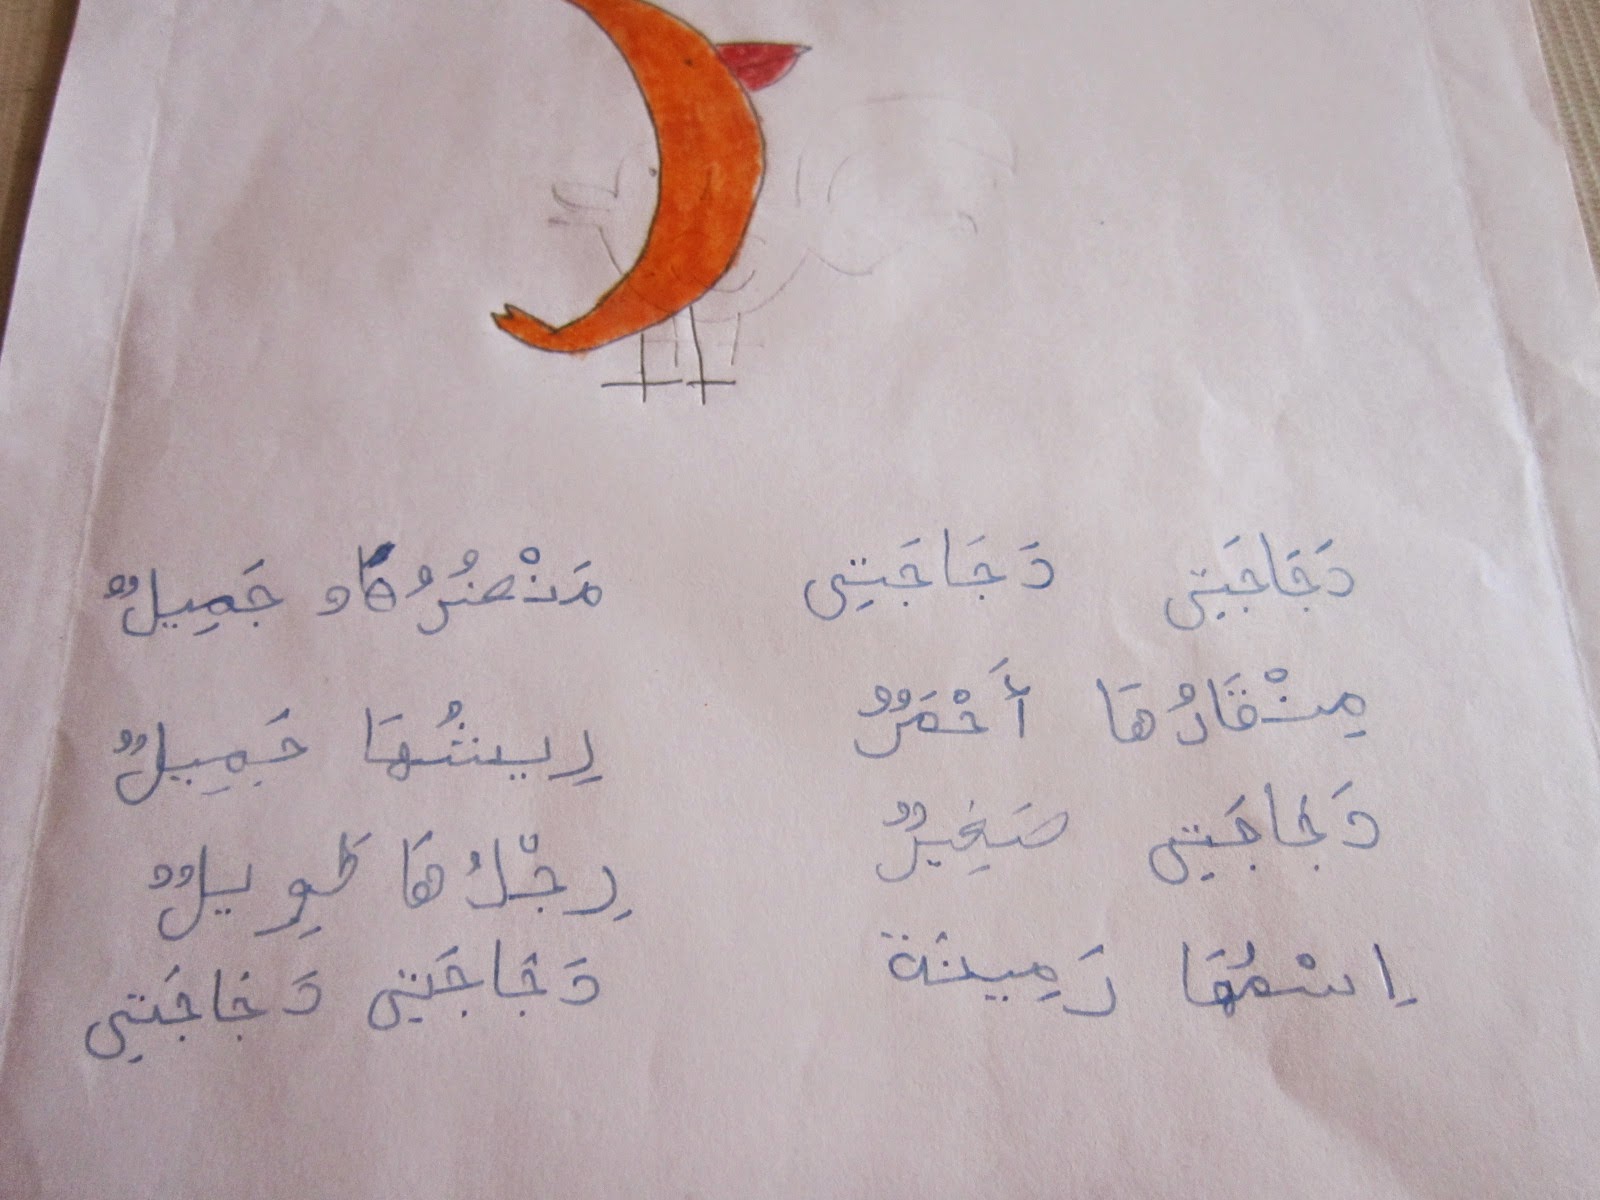 دَجَاجَتِي دَجَاجَتِي مَنْضَرُهَا و جَمِيلٌ
مِنْقَادُهَا أَحْمَرٌ رِيشُهَا جَمِيلٌ
دَجَاجَتِي صَغِيرٌ رِجْلُهَا طَوِيلٌ
اِسْمُهَا رَمِينَة دَجَاجَتِي دَجَاجَتِي